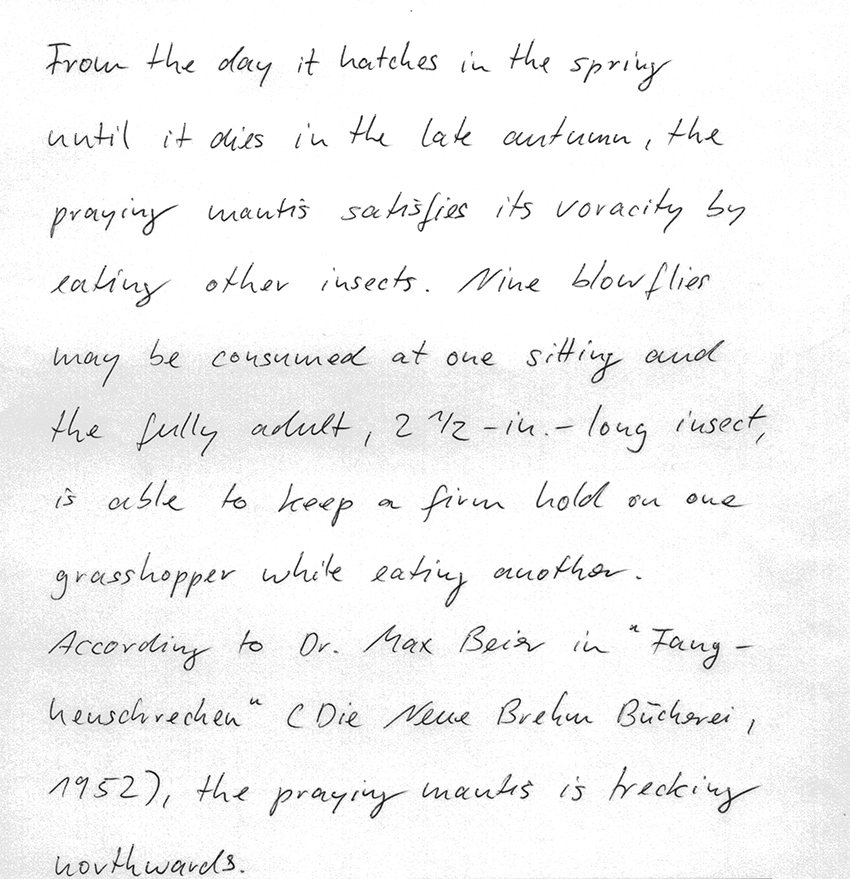 From the day it hatches in the spring
until it dies in the late autumn, the
praying mantis satisfies its voracity by
eating other insects. Nine blowflies
may be consumed at one sitting and
the fully adult, 2 1/2-in.-long insect,
is able to keep a firm hold on one
grasshopper while eating another.
According to Dr. Max Beier in "Fang-
heuschrecken" (Die Neue Brehm Bücherei,
1952), the praying mantis is trecking
northwards.